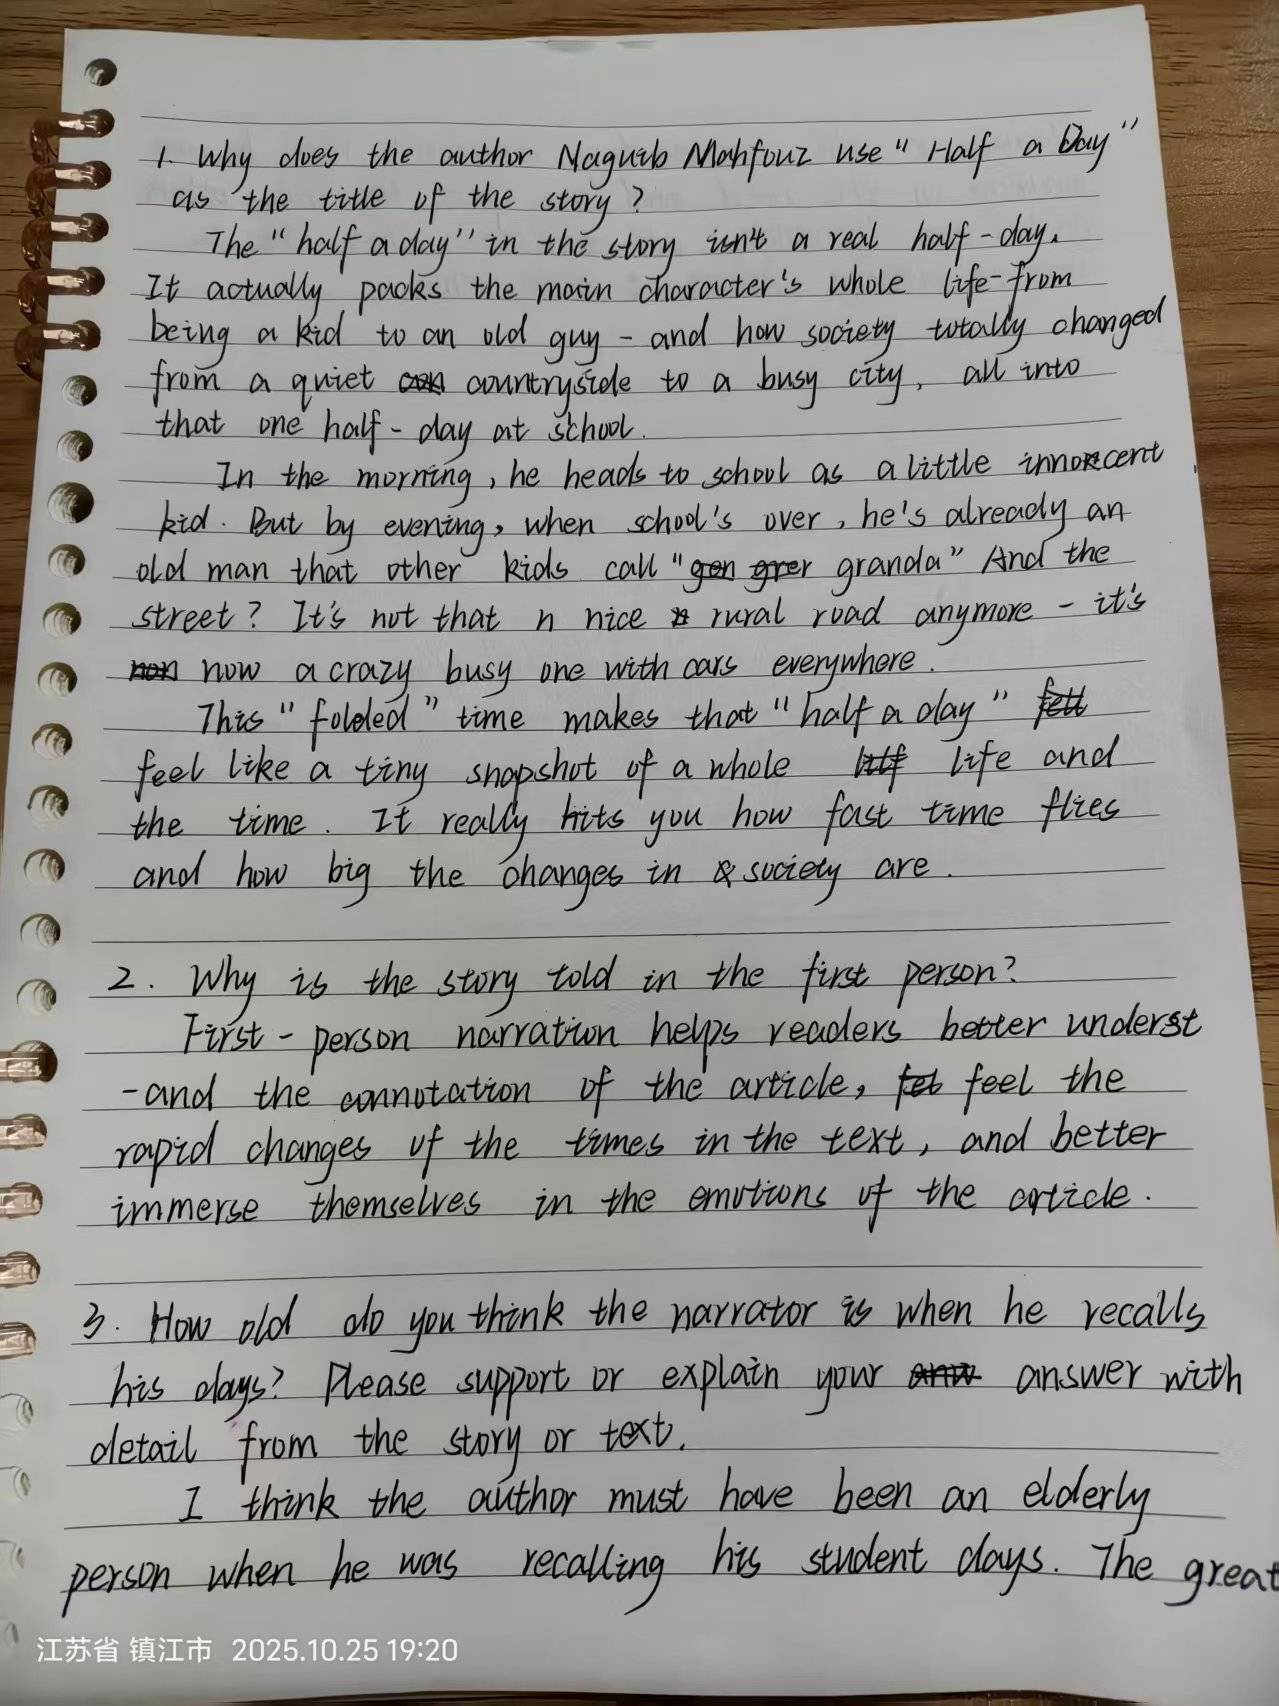 1. Why does the author Naguib Mahfouz use "Half a Day"
as the title of the story?
The "half a day" in the story isn't a real half-day.
It actually packs the main character's whole life-from
being a kid to an old guy - and how society totally changed
from a quiet countryside to a busy city, all into
that one half-day at school.
In the morning, he heads to school as a little innocent
kid. But by evening, when school's over, he's already an
old man that other kids call " granda" And the
street? It's not that n nice rural road anymore - it's
now a crazy busy one with cars everywhere.
This "folded" time makes that "half a day"
feel like a tiny snapshot of a whole life and
the time. It really hits you how fast time flies
and how big the changes in society are.
2. Why is the story told in the first person?
First-person narration helps readers better underst
-and the connotation of the article, feel the
rapid changes of the times in the text, and better
immerse themselves in the emotions of the article.
3. How old do you think the narrator is when he recalls
his days? Please support or explain your answer with
detail from the story or text.
I think the author must have been an elderly
person when he was recalling his student days. The great
江苏省 镇江市 2025.10.25 19:20